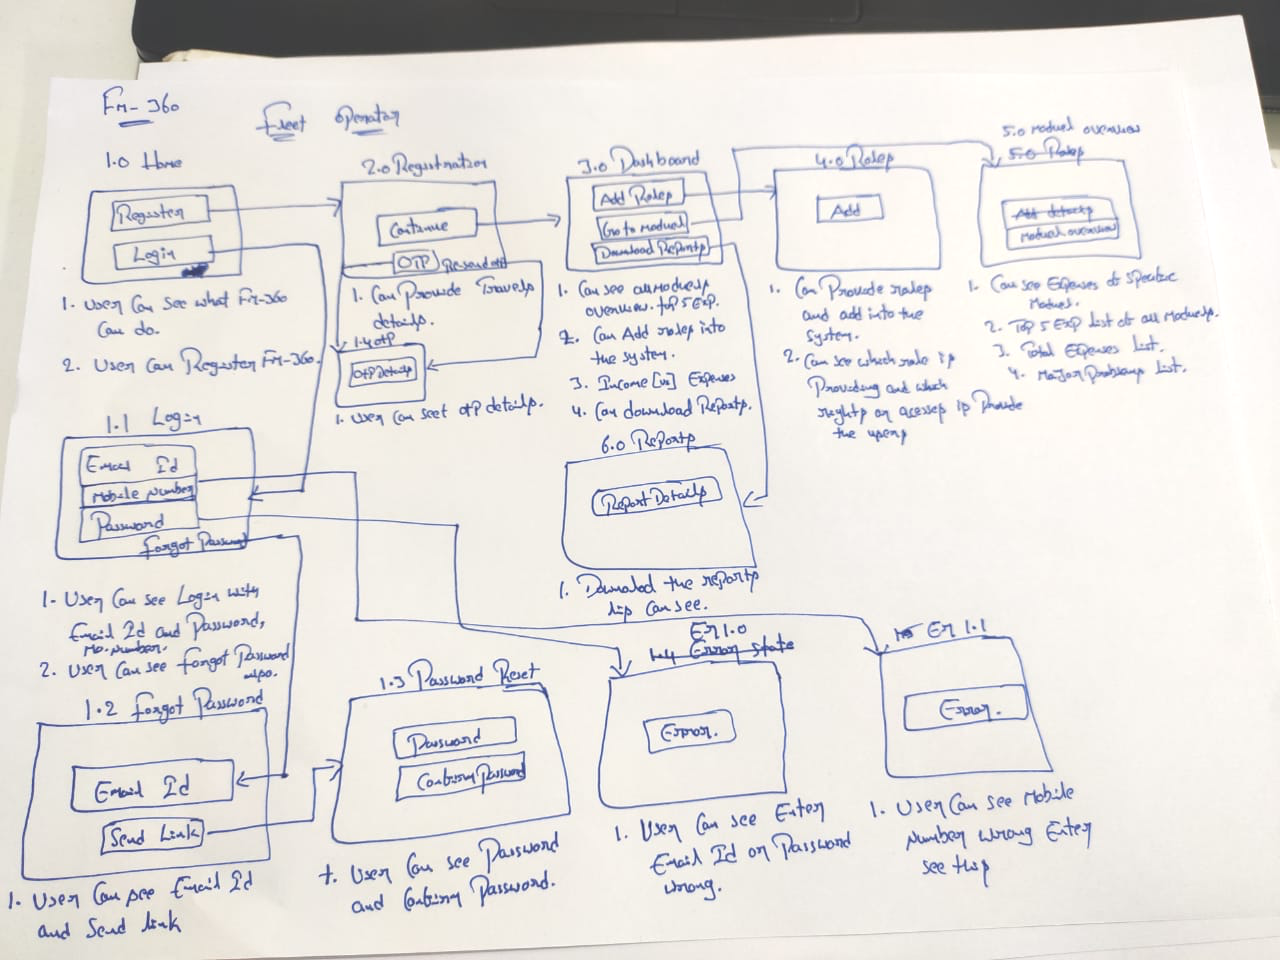 Fm-360
Fleet Operator
1.0 Home
Register
Login
1. User Can see what Fm-360
Can do.
2. User Can Register Fm-360.
2.0 Registration
Continue
OTP
Resend OTP
1. Can Provide Travels
details.
1.4 OTP
OTP Details
1. User Can see OTP details.
3.0 Dashboard
Add Roles
Go to Moduel
Download Reports
1. Can see all moduels
overview. top 5 EXP.
2. Can Add roles into
the system.
3. Income [vs] Expenses
4. Can download Reports.
4.0 Roles
Add
1. Can Provide roles
and add into the
system.
2. Can see which role is
Providing and which
rights or acesses is Provide
the users
5.0 Moduel overview
5.0 Roles
Add details
Moduel overview
1. Can see Expenses of Specific
Moduel.
2. Top 5 Exp List of all Moduels.
3. Total Expenses List.
4. Major Problems List.
1.1 Login
Email Id
Mobile Number
Password
Forgot Password
1. User Can see Login with
Email Id and Password,
Mo. Number.
2. User Can see Forgot Password
also.
6.0 Reports
Report Details
1. Downalod the reports
can see.
1.2 Forgot Password
Email Id
Send Link
1. User Can see Email Id
and Send link
1.3 Password Reset
Password
Confirm Password
1. User Can see Password
and Confirm Password.
Er 1.0
1.4 Error State
Error.
1. User Can see Enter
Email Id or Password
wrong.
Er 1.1
Error.
1. User Can see Mobile
Number wrong Enter
see this